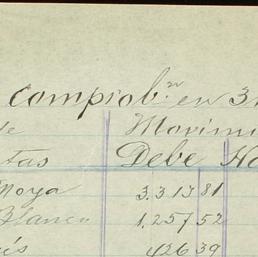 comprob.on en 31
de Movimi
tas Debe Ha
Moya 3.313 81
Blanco 1.257 52
és 426 39